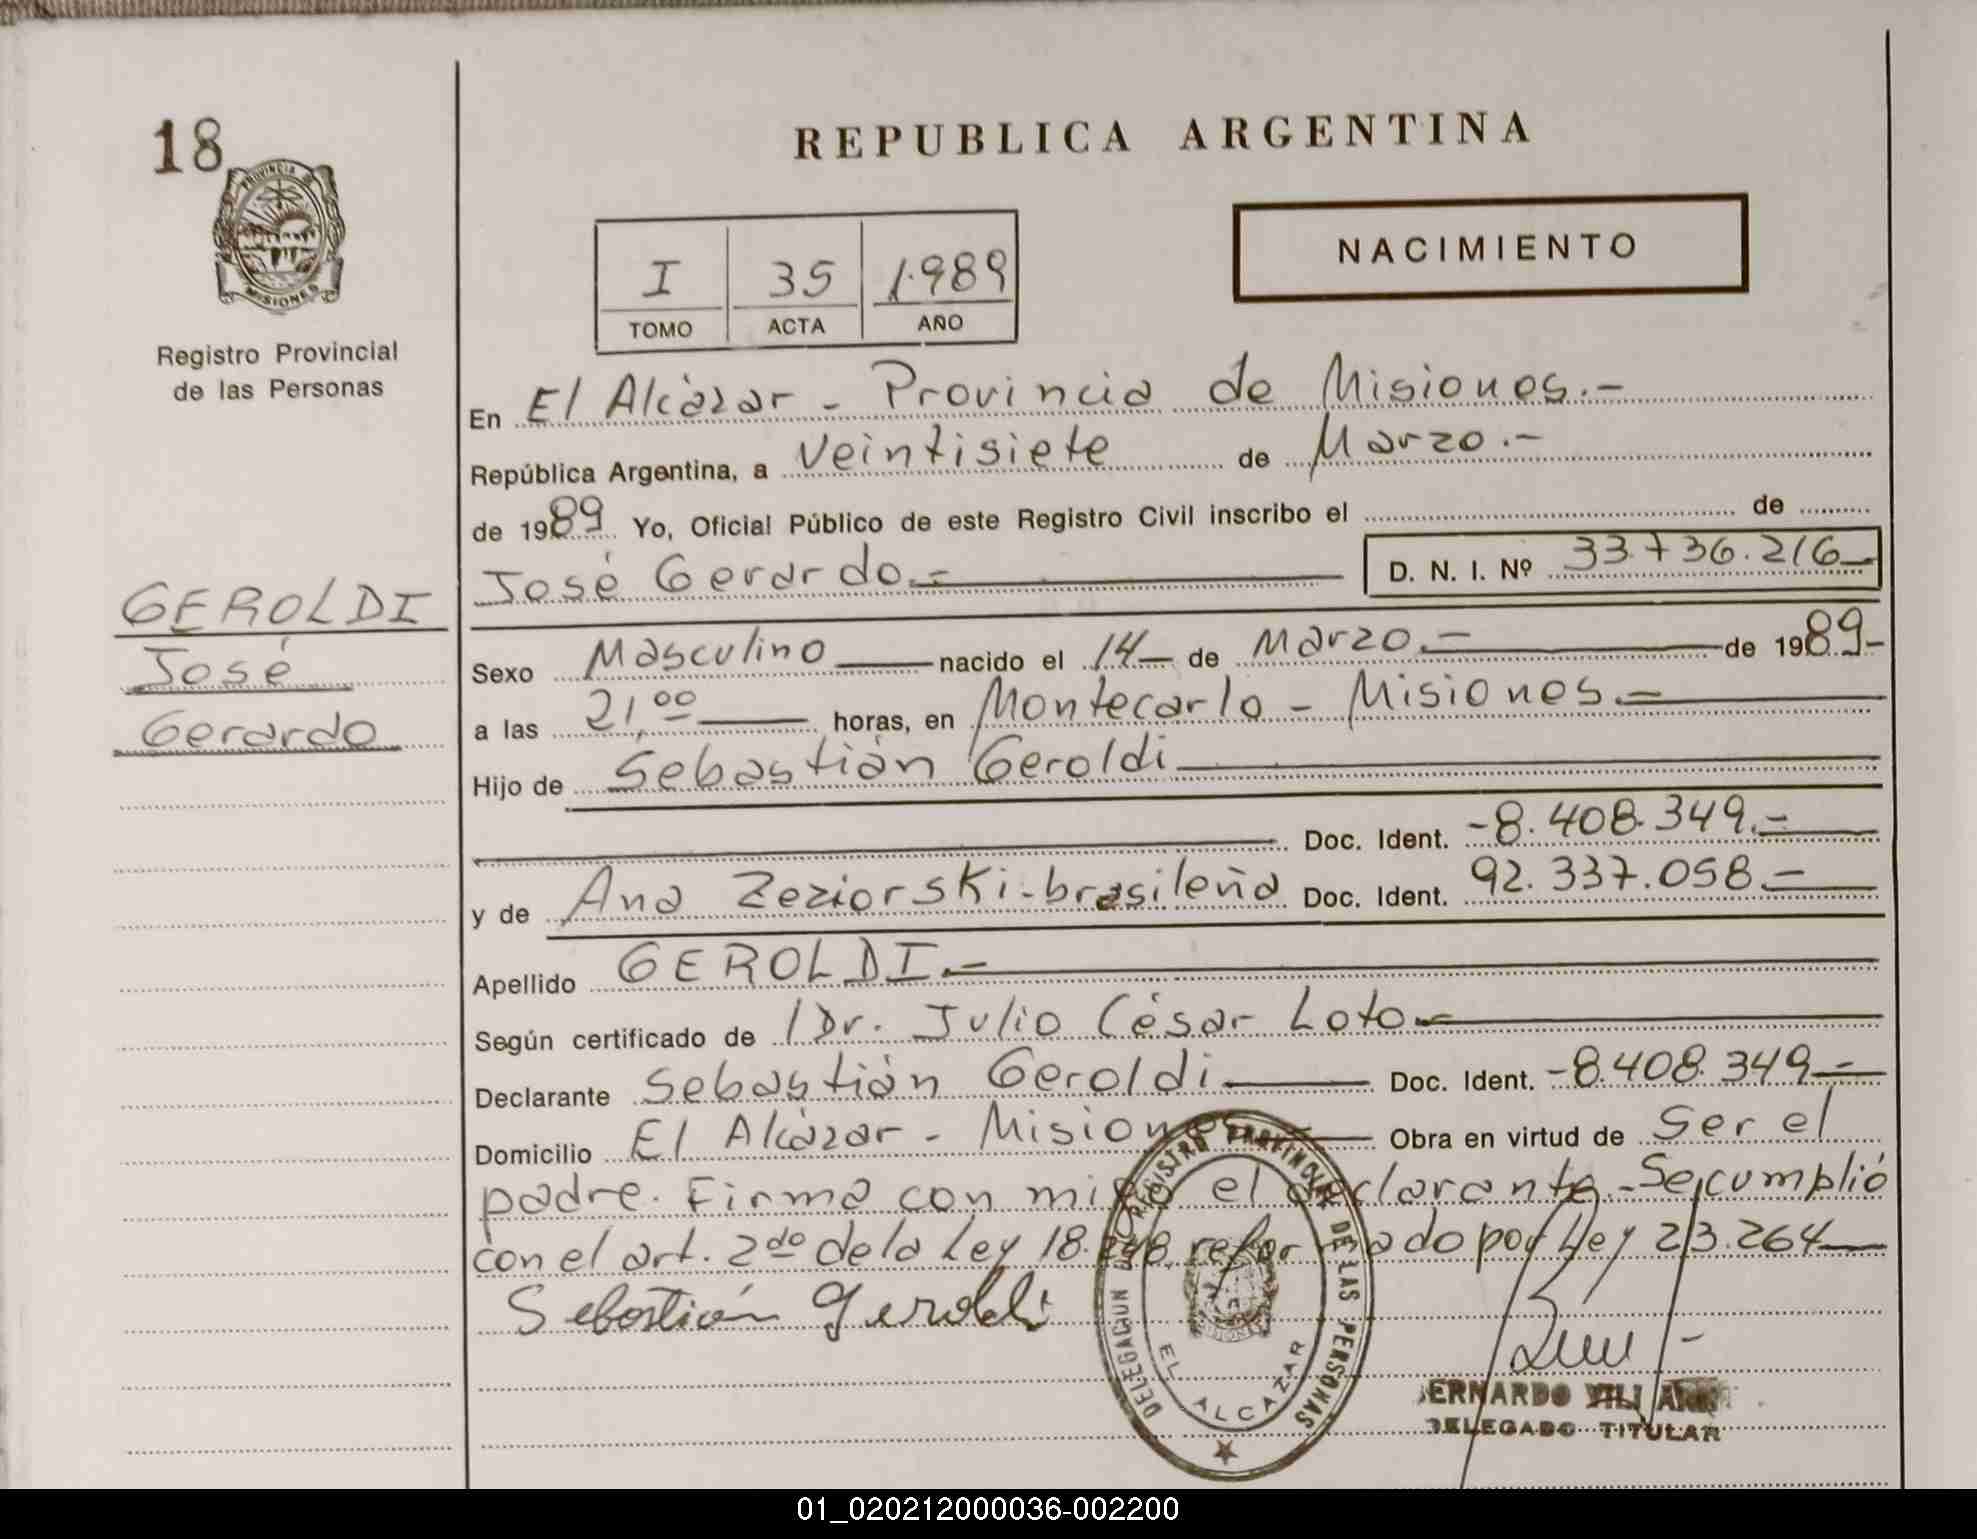 18
REPUBLICA ARGENTINA
PROVINCIA DE
MISIONES
Registro Provincial
de las Personas
NACIMIENTO
I 35 1.989
TOMO ACTA AÑO
En El Alcázar - Provincia de Misiones.-
República Argentina, a Veintisiete de Marzo.-
de 1989 Yo, Oficial Público de este Registro Civil inscribo el de
José Gerardo.- D. N. I. Nº 33.736.216
GEROLDI
José
Gerardo
Sexo Masculino nacido el 14 de Marzo.- de 1989-
a las 21,00 horas, en Montecarlo - Misiones.-
Hijo de Sebastián Geroldi
Doc. Ident. -8.408.349.-
y de Ana Zeziorski-brasileña Doc. Ident. 92.337.058.-
Apellido GEROLDI.-
Según certificado de Dr. Julio César Loto.-
Declarante Sebastián Geroldi Doc. Ident. -8.408.349.-
Domicilio El Alcázar - Misiones Obra en virtud de Ser el
padre. Firma con migo el declarante.-Se cumplió
con el art. 2do de la Ley 18.248, reformado por Ley 23.264
Sebastián Geroldi
DELEGACION DEL REGISTRO PROVINCIAL DE LAS PERSONAS
EL ALCAZAR
BERNARDO
DELEGADO TITULAR
01_020212000036-002200